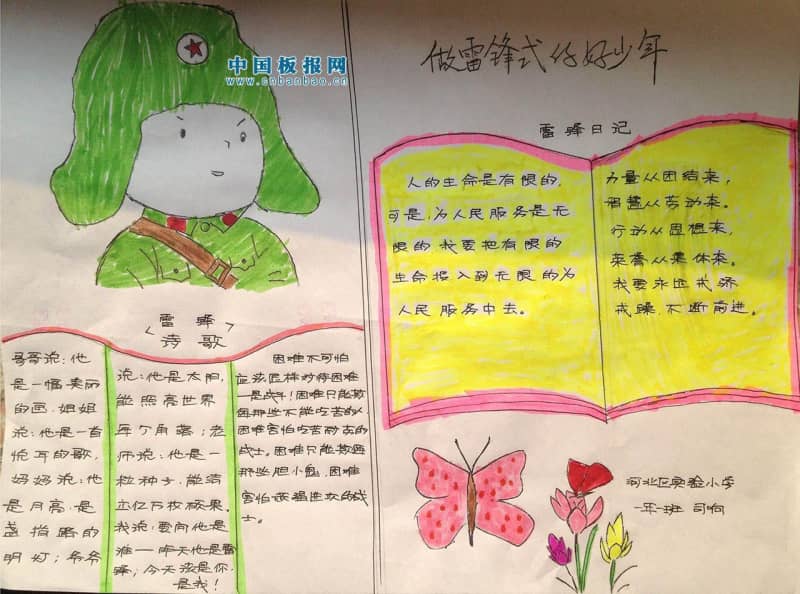 中国板报网
www.cnbanbao.cn
<雷锋>
诗歌
哥哥说:他
是一幅美丽
的画,姐姐
说:他是一首
悦耳的歌,
妈妈说:他
是月亮,是
盏指路的
明灯;爷爷
说:他是太阳,
能照亮世界
每个角落;老
师说:他是一
粒种子,能结
亿万枚硕果。
我说:要问他是
谁——昨天他是雷
锋;今天该是你,
是我!
困难不可怕
应该怎样对待困难
一是战斗!困难只能
困那些不能吃苦的人,
困难害怕吃苦耐劳的
战士,困难只能
那些胆小鬼,困难
害怕顽强进攻的战
士。
做雷锋式好少年
雷锋日记
人的生命是有限的,
可是,为人民服务是无
限的,我要把有限的
生命投入到无限的为
人民服务中去。
力量从团结来,
智慧从劳动来。
行动从思想来,
荣誉从集体来。
我要永远戒骄
戒躁,不断前进。
河北区实验小学
一年一班